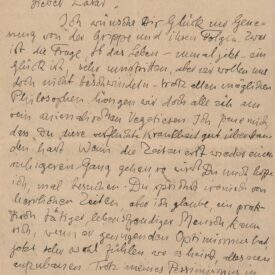 Lieber Zalai
Ich wünsche Dir Glück und Gene-
sung von der Grippe und ihren Folgen. Zwar
ist die Frage ob das Leben – einmal jetzt – ein
Glück ist, sehr umstritten, aber wir wollen uns
doch nicht beschwindeln – trotz allen möglichen
Philosophen hängen wir doch alle sehr am
rein animalischen Vegetieren. Ich freue mich,
dass Du diese verfluchte Krankheit gut überstan-
den hast. Wenn die Zeiten erst wieder einen
ruhigeren Gang gehen so wirst Du mich hoffe
ich, mal besuchen. Du sprichst ironisch von
herrlichen Zeiten, aber ich glaube, ein prak-
tisch tätiger lebenskundiger Mensch kann
sich, wenn er genügenden Optimismus hat
jetzt sehr wohl fühlen
anzubauen. Trotz meines Pessimismus in